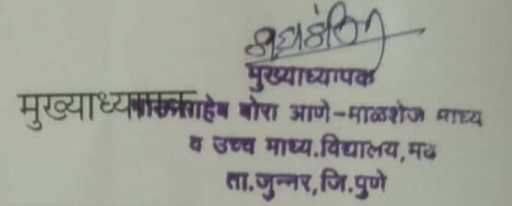 मुख्याध्यापक
मुख्याध्यापक बोरा आणे-माळशेज माध्य
व उच्च माध्य.विद्यालय, मढ
ता.जुन्नर, जि.पुणे